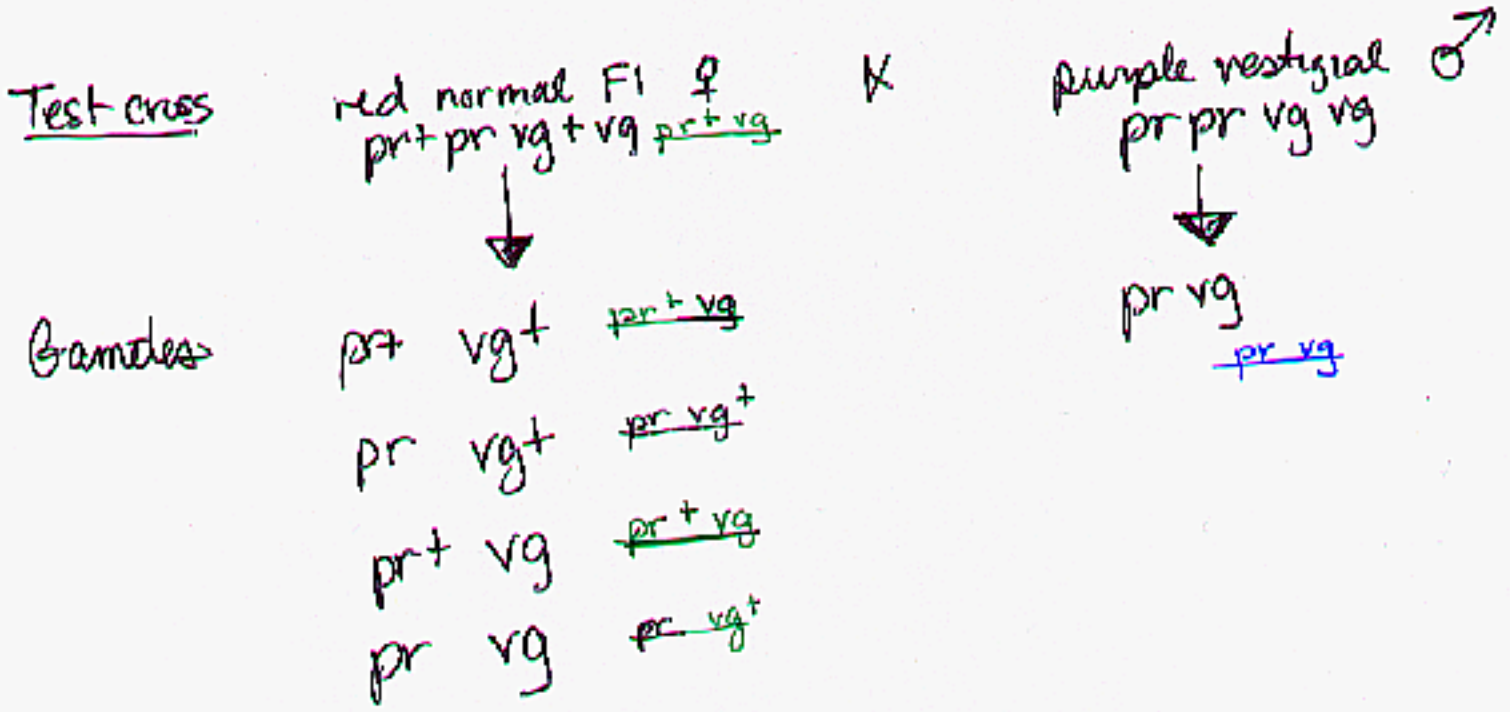 Test cross red normal F1 ♀ X purple vestigial ♂
pr+ pr vg+ vg pr+ vg pr pr vg vg
Gametes pr+ vg+ pr+ vg pr vg
pr vg
pr vg+ pr vg+
pr+ vg pr+ vg
pr vg pr vg+